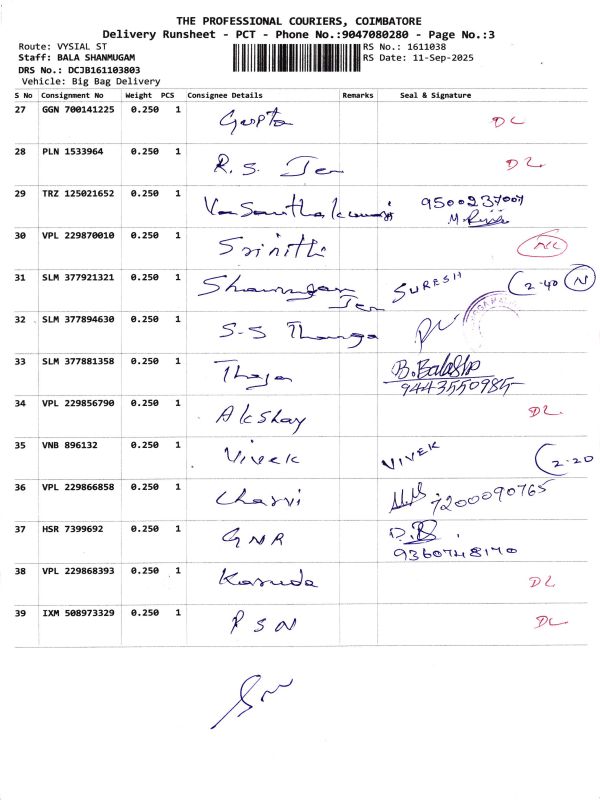 THE PROFESSIONAL COURIERS, COIMBATORE
Delivery Runsheet - PCT - Phone No.:9047080280 - Page No.:3
Route: VYSIAL ST RS No.: 1611038
Staff: BALA SHANMUGAM RS Date: 11-Sep-2025
DRS No.: DCJB161103803
Vehicle: Big Bag Delivery
S No Consignment No Weight PCS Consignee Details Remarks Seal & Signature
27 GGN 700141225 0.250 1 Gupta DL
28 PLN 1533964 0.250 1 R. S. Jen DL
29 TRZ 125021652 0.250 1 Vasanthakumari 9500237007
30 VPL 229870010 0.250 1 Srinithi NC
31 SLM 377921321 0.250 1 Shanmugan Jen SURESH 2-40 N
32 SLM 377894630 0.250 1 S-S Thanga
33 SLM 377881358 0.250 1 Thaja B. Balasho
9443550985
34 VPL 229856790 0.250 1 Akshay DL
35 VNB 896132 0.250 1 Vivek VIVEK 2-20
36 VPL 229866858 0.250 1 Charvi 7200090765
37 HSR 7399692 0.250 1 GNR
9360748170
38 VPL 229868393 0.250 1 Karuda DL
39 IXM 508973329 0.250 1 PSN DL